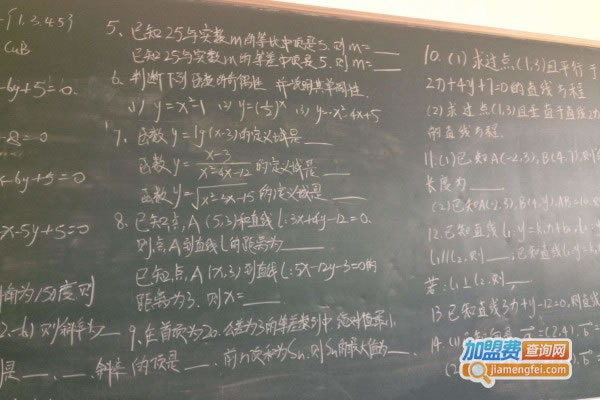 ={1,3,4,5}
CuB
-6y+5=0.
-8=0
x-6y+5=0
x-5y+5=0
角为150度则
则斜率为
5、已知25与实数m的等比中项是5.则m=____
已知25与实数m的等差中项是5.则m=____
6、判断下列函数的奇偶性,并说明其单调性.
(1) y=x²-1 (2) y=(½)ˣ (3) y=x²-4x+5
7、函数y=lg(x-3)的定义域是___
函数y=x-3/x²-4x-12的定义域是___
函数y=√x²-2x-15的定义域是___
8、已知点A(5,3)和直线l:3x+4y-12=0.
则点A到直线l的距离为____
已知点A(x,3)到直线l:5x-12y-3=0的
距离为3.则x=____
9、在首项为20.公差为3的等差数列中
的项是____.前n项和为Sn.则Sn的最大值为____.
10.(1)求过点(1,3)且平行于
2x+4y+1=0的直线方程
(2)求过点(1,3)且垂直于直线2x
的直线方程.
11.(1)已知A(-2,3),B(4,7),则
长度为____
(2)已知A(-2,3),B(4,y),AB=10.
12.已知直线l₁:y=k₁x+b₁.
l₁//l₂.则____;已知直线l₁:y=k
若:l₁⊥l₂.则____
13.已知直线3x+4y-12=0.则直线
14.(1)已知向量a=(2,4),b=
加盟费查询网
jiamengfei.com